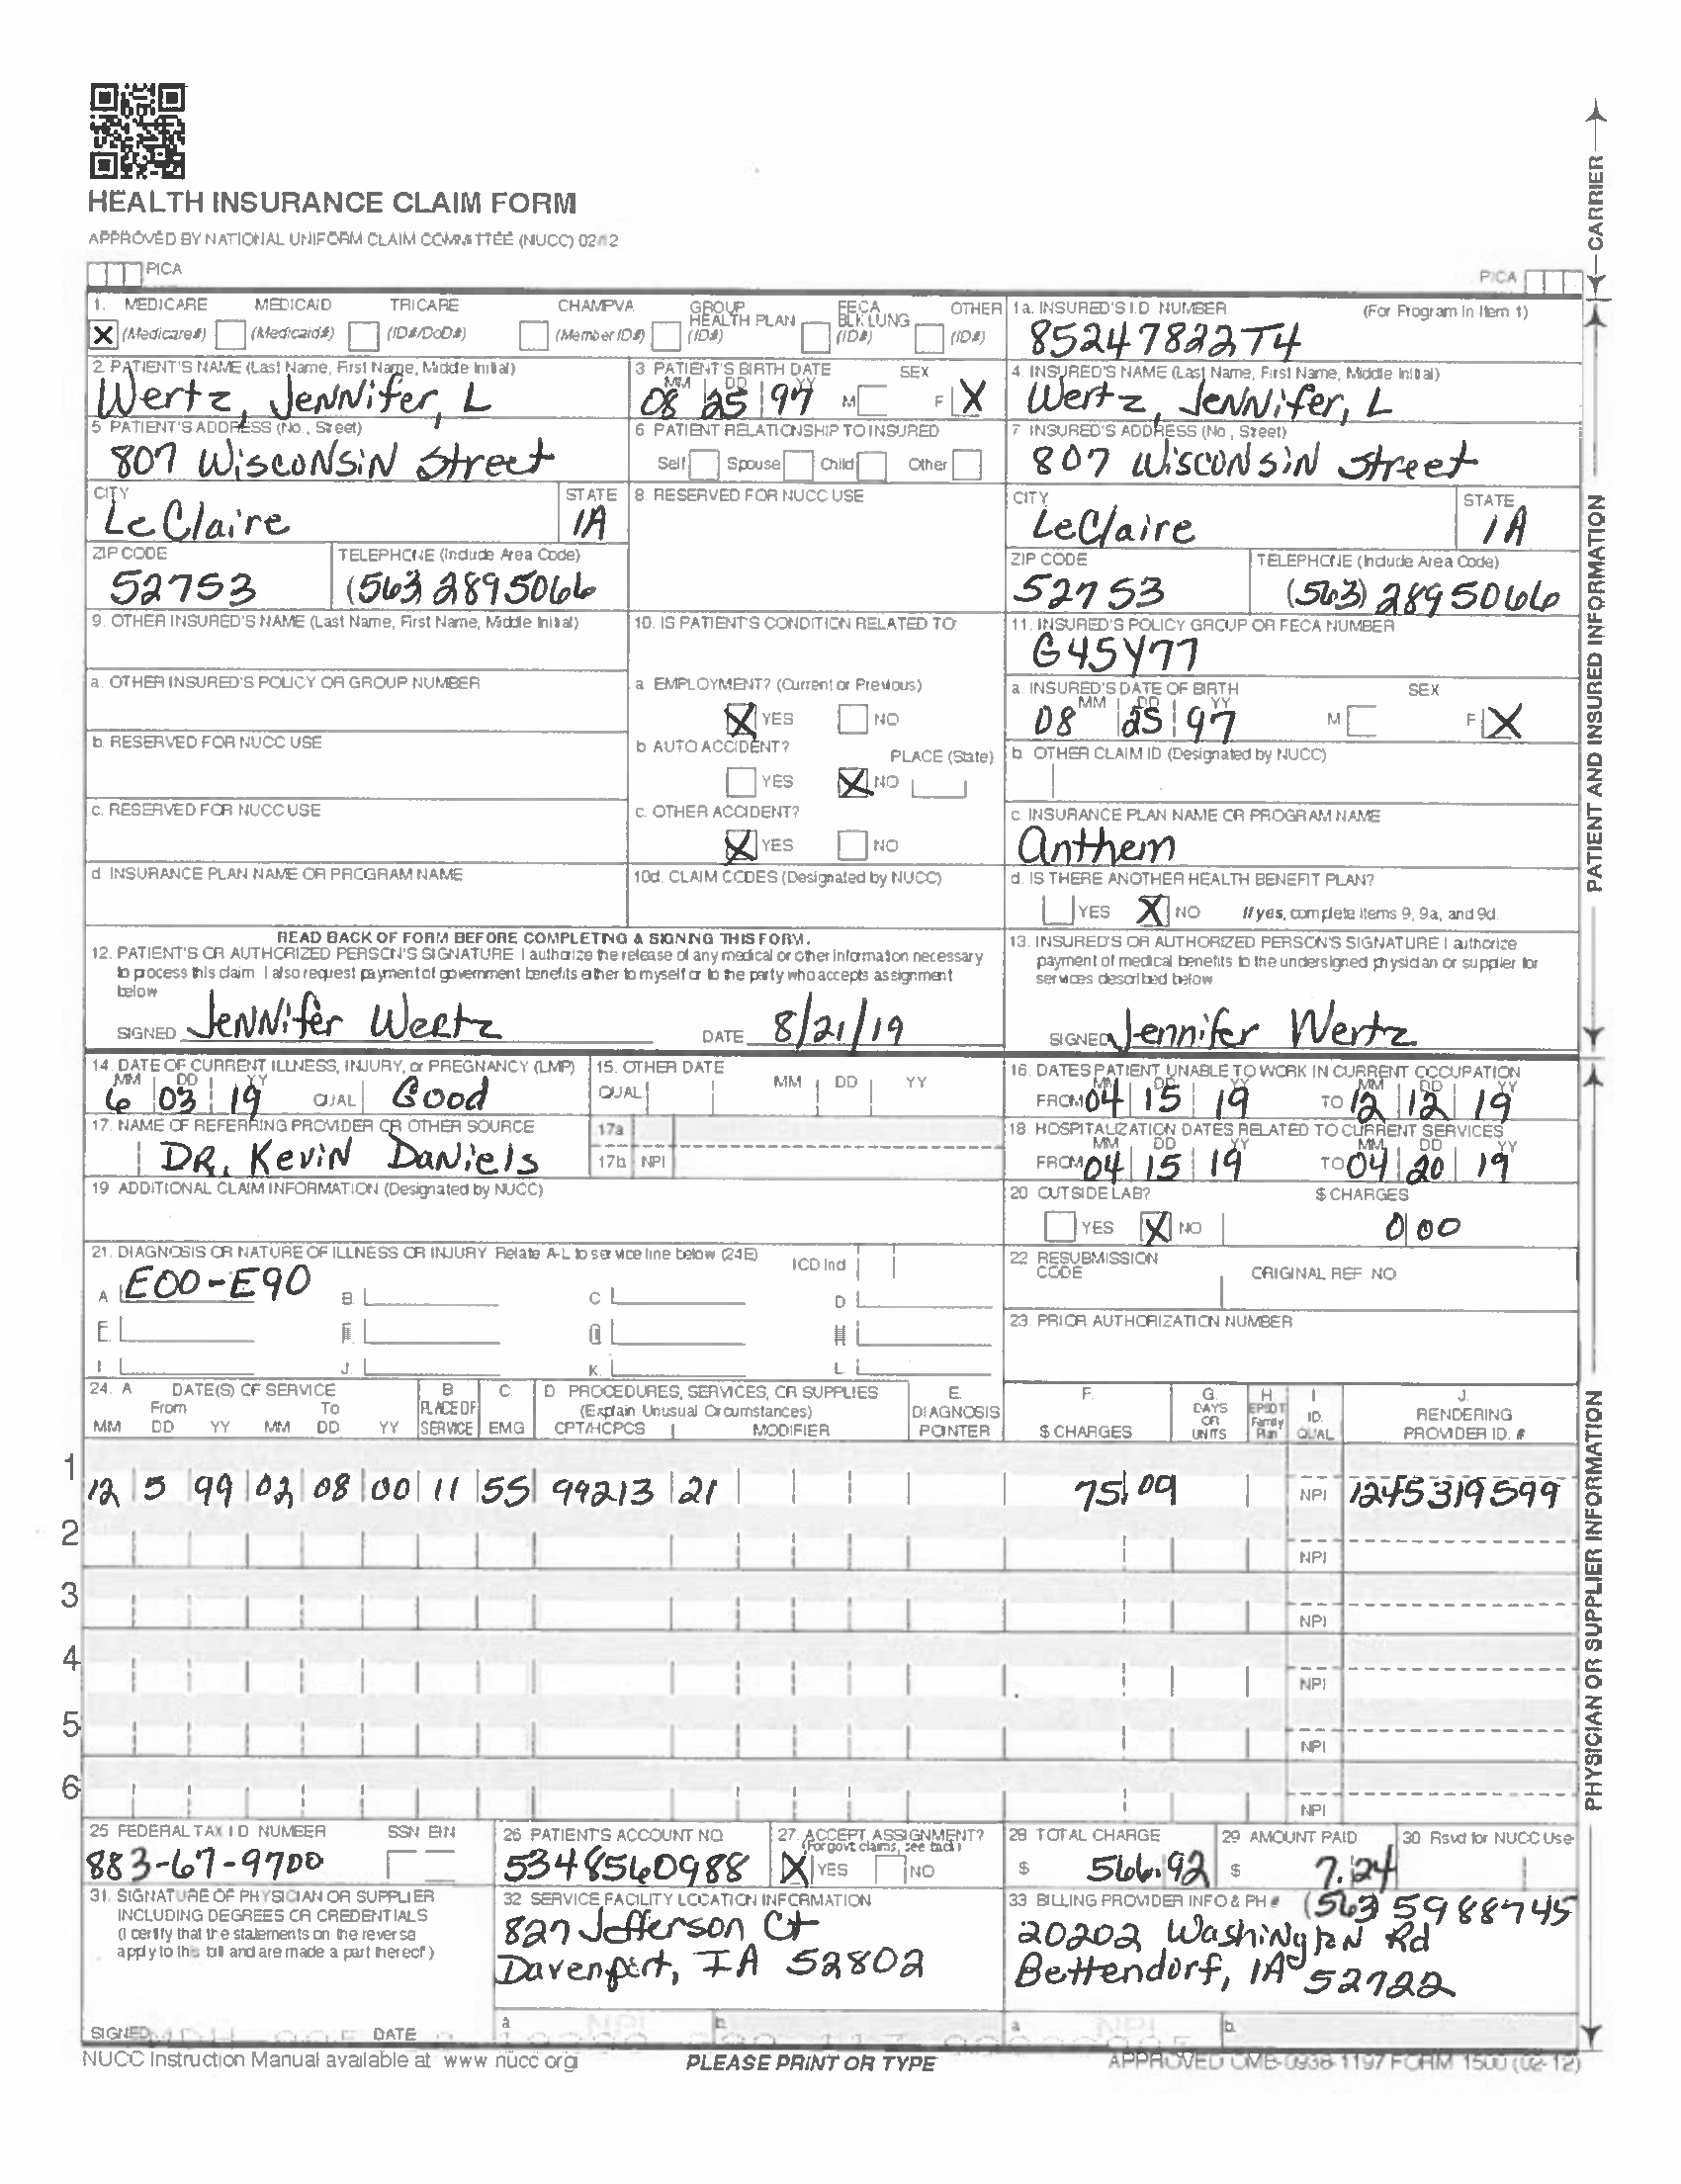 HEALTH INSURANCE CLAIM FORM
APPROVED BY NATIONAL UNIFORM CLAIM COMMITTEE (NUCC) 02/12
PICA
PICA
CARRIER
1. MEDICARE MEDICAID TRICARE CHAMPVA GROUP HEALTH PLAN FECA BLK LUNG OTHER
X (Medicare#) (Medicaid#) (ID#/DoD#) (Member ID#) (ID#) (ID#) (ID#)
1a. INSURED'S I.D. NUMBER (For Program in Item 1)
85247822T4
2. PATIENT'S NAME (Last Name, First Name, Middle Initial)
Wertz, Jennifer, L
3. PATIENT'S BIRTH DATE SEX
MM DD YY
08 25 97 M F X
4. INSURED'S NAME (Last Name, First Name, Middle Initial)
Wertz, Jennifer, L
5. PATIENT'S ADDRESS (No., Street)
807 Wisconsin Street
6. PATIENT RELATIONSHIP TO INSURED
Self Spouse Child Other
7. INSURED'S ADDRESS (No., Street)
807 Wisconsin Street
CITY STATE
LeClaire IA
8. RESERVED FOR NUCC USE
CITY STATE
LeClaire IA
ZIP CODE TELEPHONE (Include Area Code)
52753 (563 2895066
ZIP CODE TELEPHONE (Include Area Code)
52753 (563) 2895066
9. OTHER INSURED'S NAME (Last Name, First Name, Middle Initial)
10. IS PATIENT'S CONDITION RELATED TO:
11. INSURED'S POLICY GROUP OR FECA NUMBER
G45Y77
a. OTHER INSURED'S POLICY OR GROUP NUMBER
a. EMPLOYMENT? (Current or Previous)
X YES NO
a. INSURED'S DATE OF BIRTH SEX
MM DD YY
08 25 97 M F X
b. RESERVED FOR NUCC USE
b. AUTO ACCIDENT? PLACE (State)
YES X NO
b. OTHER CLAIM ID (Designated by NUCC)
c. RESERVED FOR NUCC USE
c. OTHER ACCIDENT?
X YES NO
c. INSURANCE PLAN NAME OR PROGRAM NAME
Anthem
d. INSURANCE PLAN NAME OR PROGRAM NAME
10d. CLAIM CODES (Designated by NUCC)
d. IS THERE ANOTHER HEALTH BENEFIT PLAN?
YES X NO If yes, complete items 9, 9a, and 9d.
PATIENT AND INSURED INFORMATION
READ BACK OF FORM BEFORE COMPLETING & SIGNING THIS FORM.
12. PATIENT'S OR AUTHORIZED PERSON'S SIGNATURE I authorize the release of any medical or other information necessary
to process this claim. I also request payment of government benefits either to myself or to the party who accepts assignment
below
SIGNED Jennifer Wertz DATE 8/21/19
13. INSURED'S OR AUTHORIZED PERSON'S SIGNATURE I authorize
payment of medical benefits to the undersigned physician or supplier for
services described below
SIGNED Jennifer Wertz
14. DATE OF CURRENT ILLNESS, INJURY, or PREGNANCY (LMP)
MM DD YY
6 03 19 QUAL Good
15. OTHER DATE
QUAL MM DD YY
16. DATES PATIENT UNABLE TO WORK IN CURRENT OCCUPATION
MM DD YY MM DD YY
FROM 04 15 19 TO 12 12 19
17. NAME OF REFERRING PROVIDER OR OTHER SOURCE
DR. Kevin Daniels
17a
17b NPI
18. HOSPITALIZATION DATES RELATED TO CURRENT SERVICES
MM DD YY MM DD YY
FROM 04 15 19 TO 04 20 19
19 ADDITIONAL CLAIM INFORMATION (Designated by NUCC)
20 OUTSIDE LAB? $ CHARGES
YES X NO 0 00
21. DIAGNOSIS OR NATURE OF ILLNESS OR INJURY Relate A-L to service line below (24E) ICD Ind
A E00-E90 B C D
E. F. G H
I. J. K. L
22 RESUBMISSION CODE ORIGINAL REF NO
23. PRIOR AUTHORIZATION NUMBER
24. A DATE(S) OF SERVICE B C. D PROCEDURES, SERVICES, OR SUPPLIES E. F. G. H I J.
From To PLACE OF (Explain Unusual Circumstances) DIAGNOSIS DAYS OR EPSDT Family ID. RENDERING
MM DD YY MM DD YY SERVICE EMG CPT/HCPCS MODIFIER POINTER $ CHARGES UNITS Plan QUAL PROVIDER ID. #
1
12 5 99 02 08 00 11 55 99213 21 75.09 NPI 1245319599
2
NPI
3
NPI
4
NPI
5
NPI
6
NPI
PHYSICIAN OR SUPPLIER INFORMATION
25 FEDERAL TAX I D NUMBER SSN EIN
883-67-9700
26 PATIENT'S ACCOUNT NO
5348560988
27. ACCEPT ASSIGNMENT?
(For govt claims, see back)
X YES NO
28 TOTAL CHARGE
$ 566.92
29 AMOUNT PAID
$ 7.24
30 Rsvd for NUCC Use
31. SIGNATURE OF PHYSICIAN OR SUPPLIER
INCLUDING DEGREES OR CREDENTIALS
(I certify that the statements on the reverse
apply to this bill and are made a part thereof)
SIGNED DATE
32 SERVICE FACILITY LOCATION INFORMATION
827 Jefferson Ct
Davenport, IA 52802
a NPI b.
33 BILLING PROVIDER INFO & PH # (563 5988745
20202 Washington Rd
Bettendorf, IA 52722
a NPI b.
NUCC Instruction Manual available at www nucc org
PLEASE PRINT OR TYPE
APPROVED OMB-0938-1197 FORM 1500 (02-12)